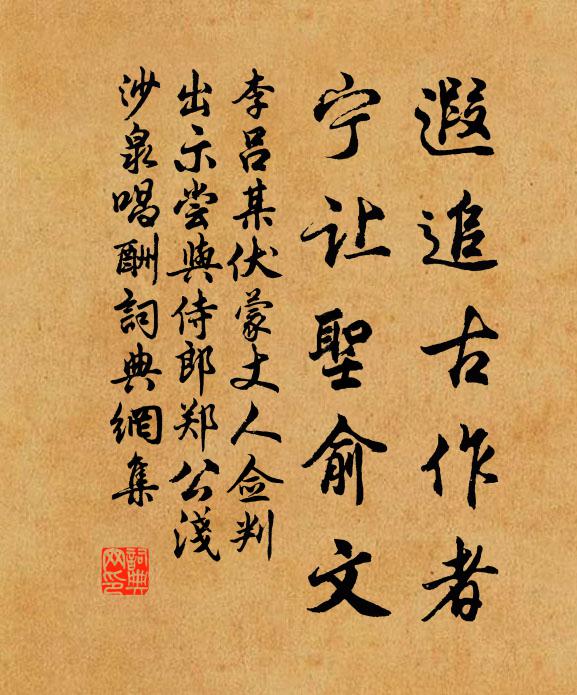 遐追古作者
宁让聖俞文
李吕某伏蒙丈人佥判
出示尝與侍郎郑公淺
沙泉唱酬詞典網集
詞典网印